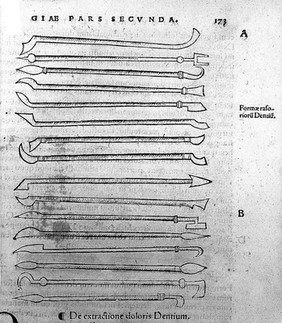 GIAE PARS SECVNDA.
173
A
Formæ raso-
riorũ Dentiũ.
B
De extractione doloris Dentium.